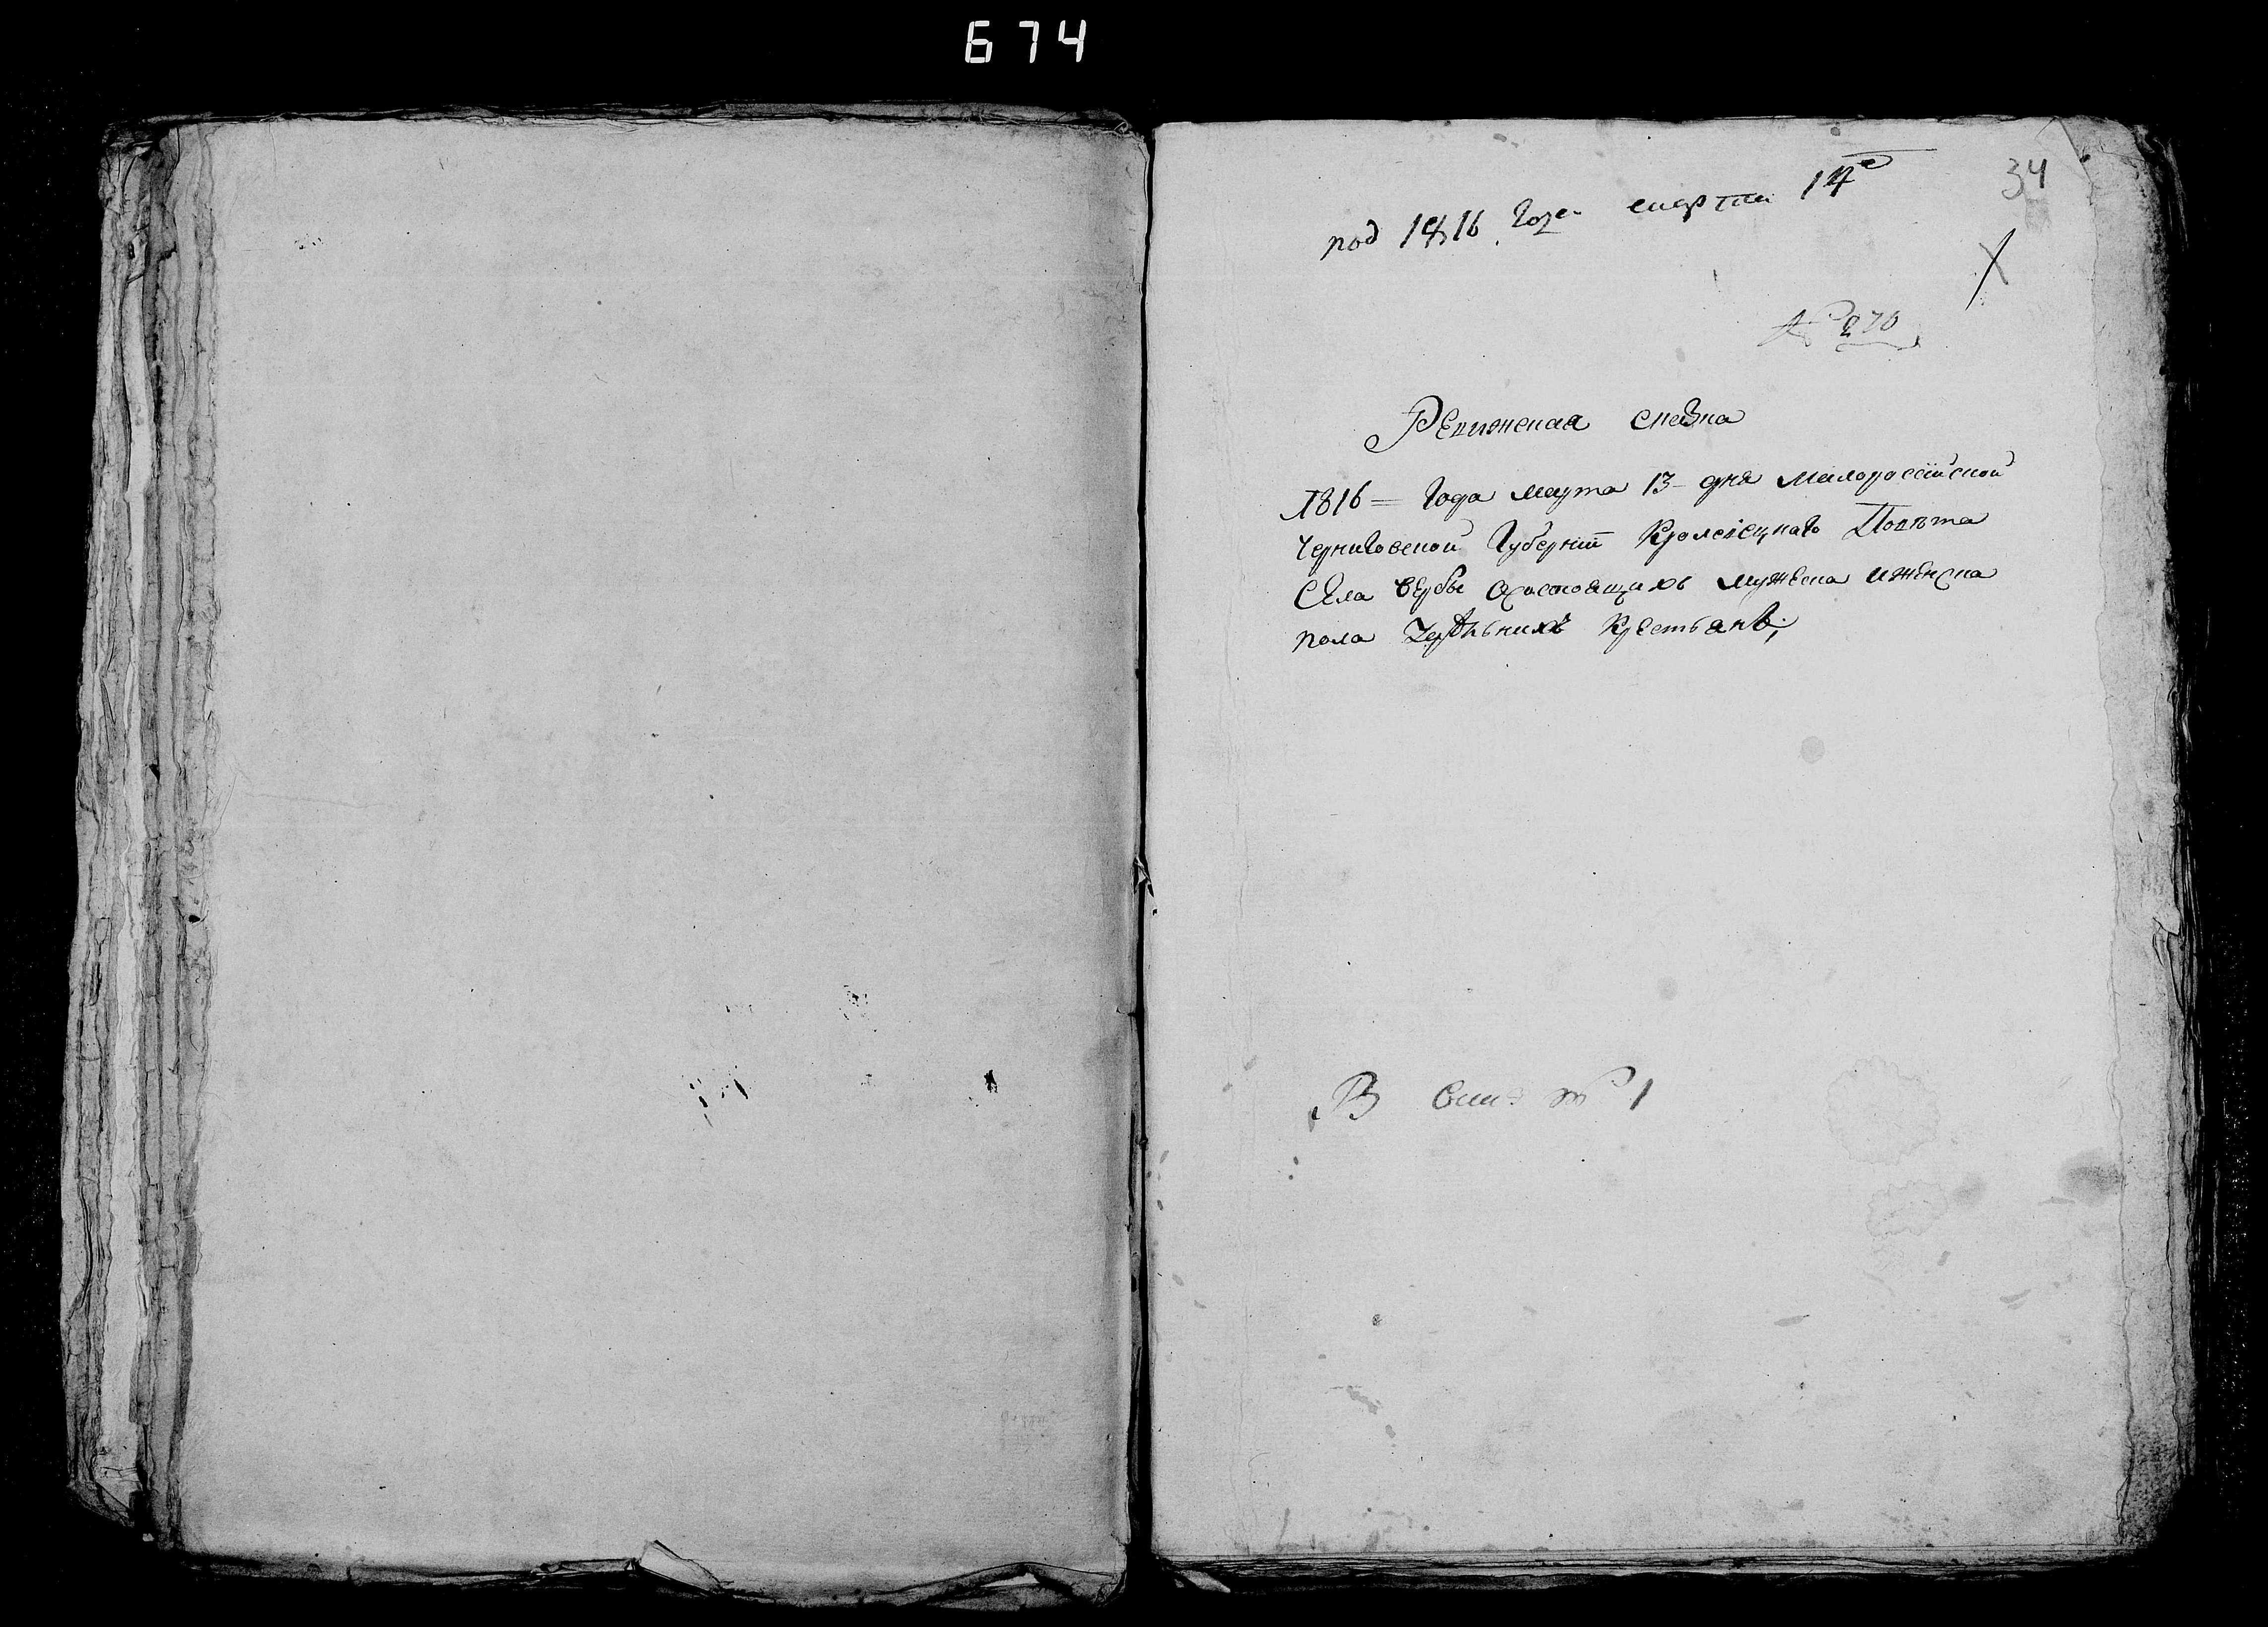 674
под 1816 года марта 14е
34
№ 270
Ревижская сказка
1816 = Года марта 13 дня малороссійской
Черниговской Губерніи Кролевецкаго Повѣта
Села вербы Осостоящихъ мужеска иженска
пола Крестьянъ;
В №1